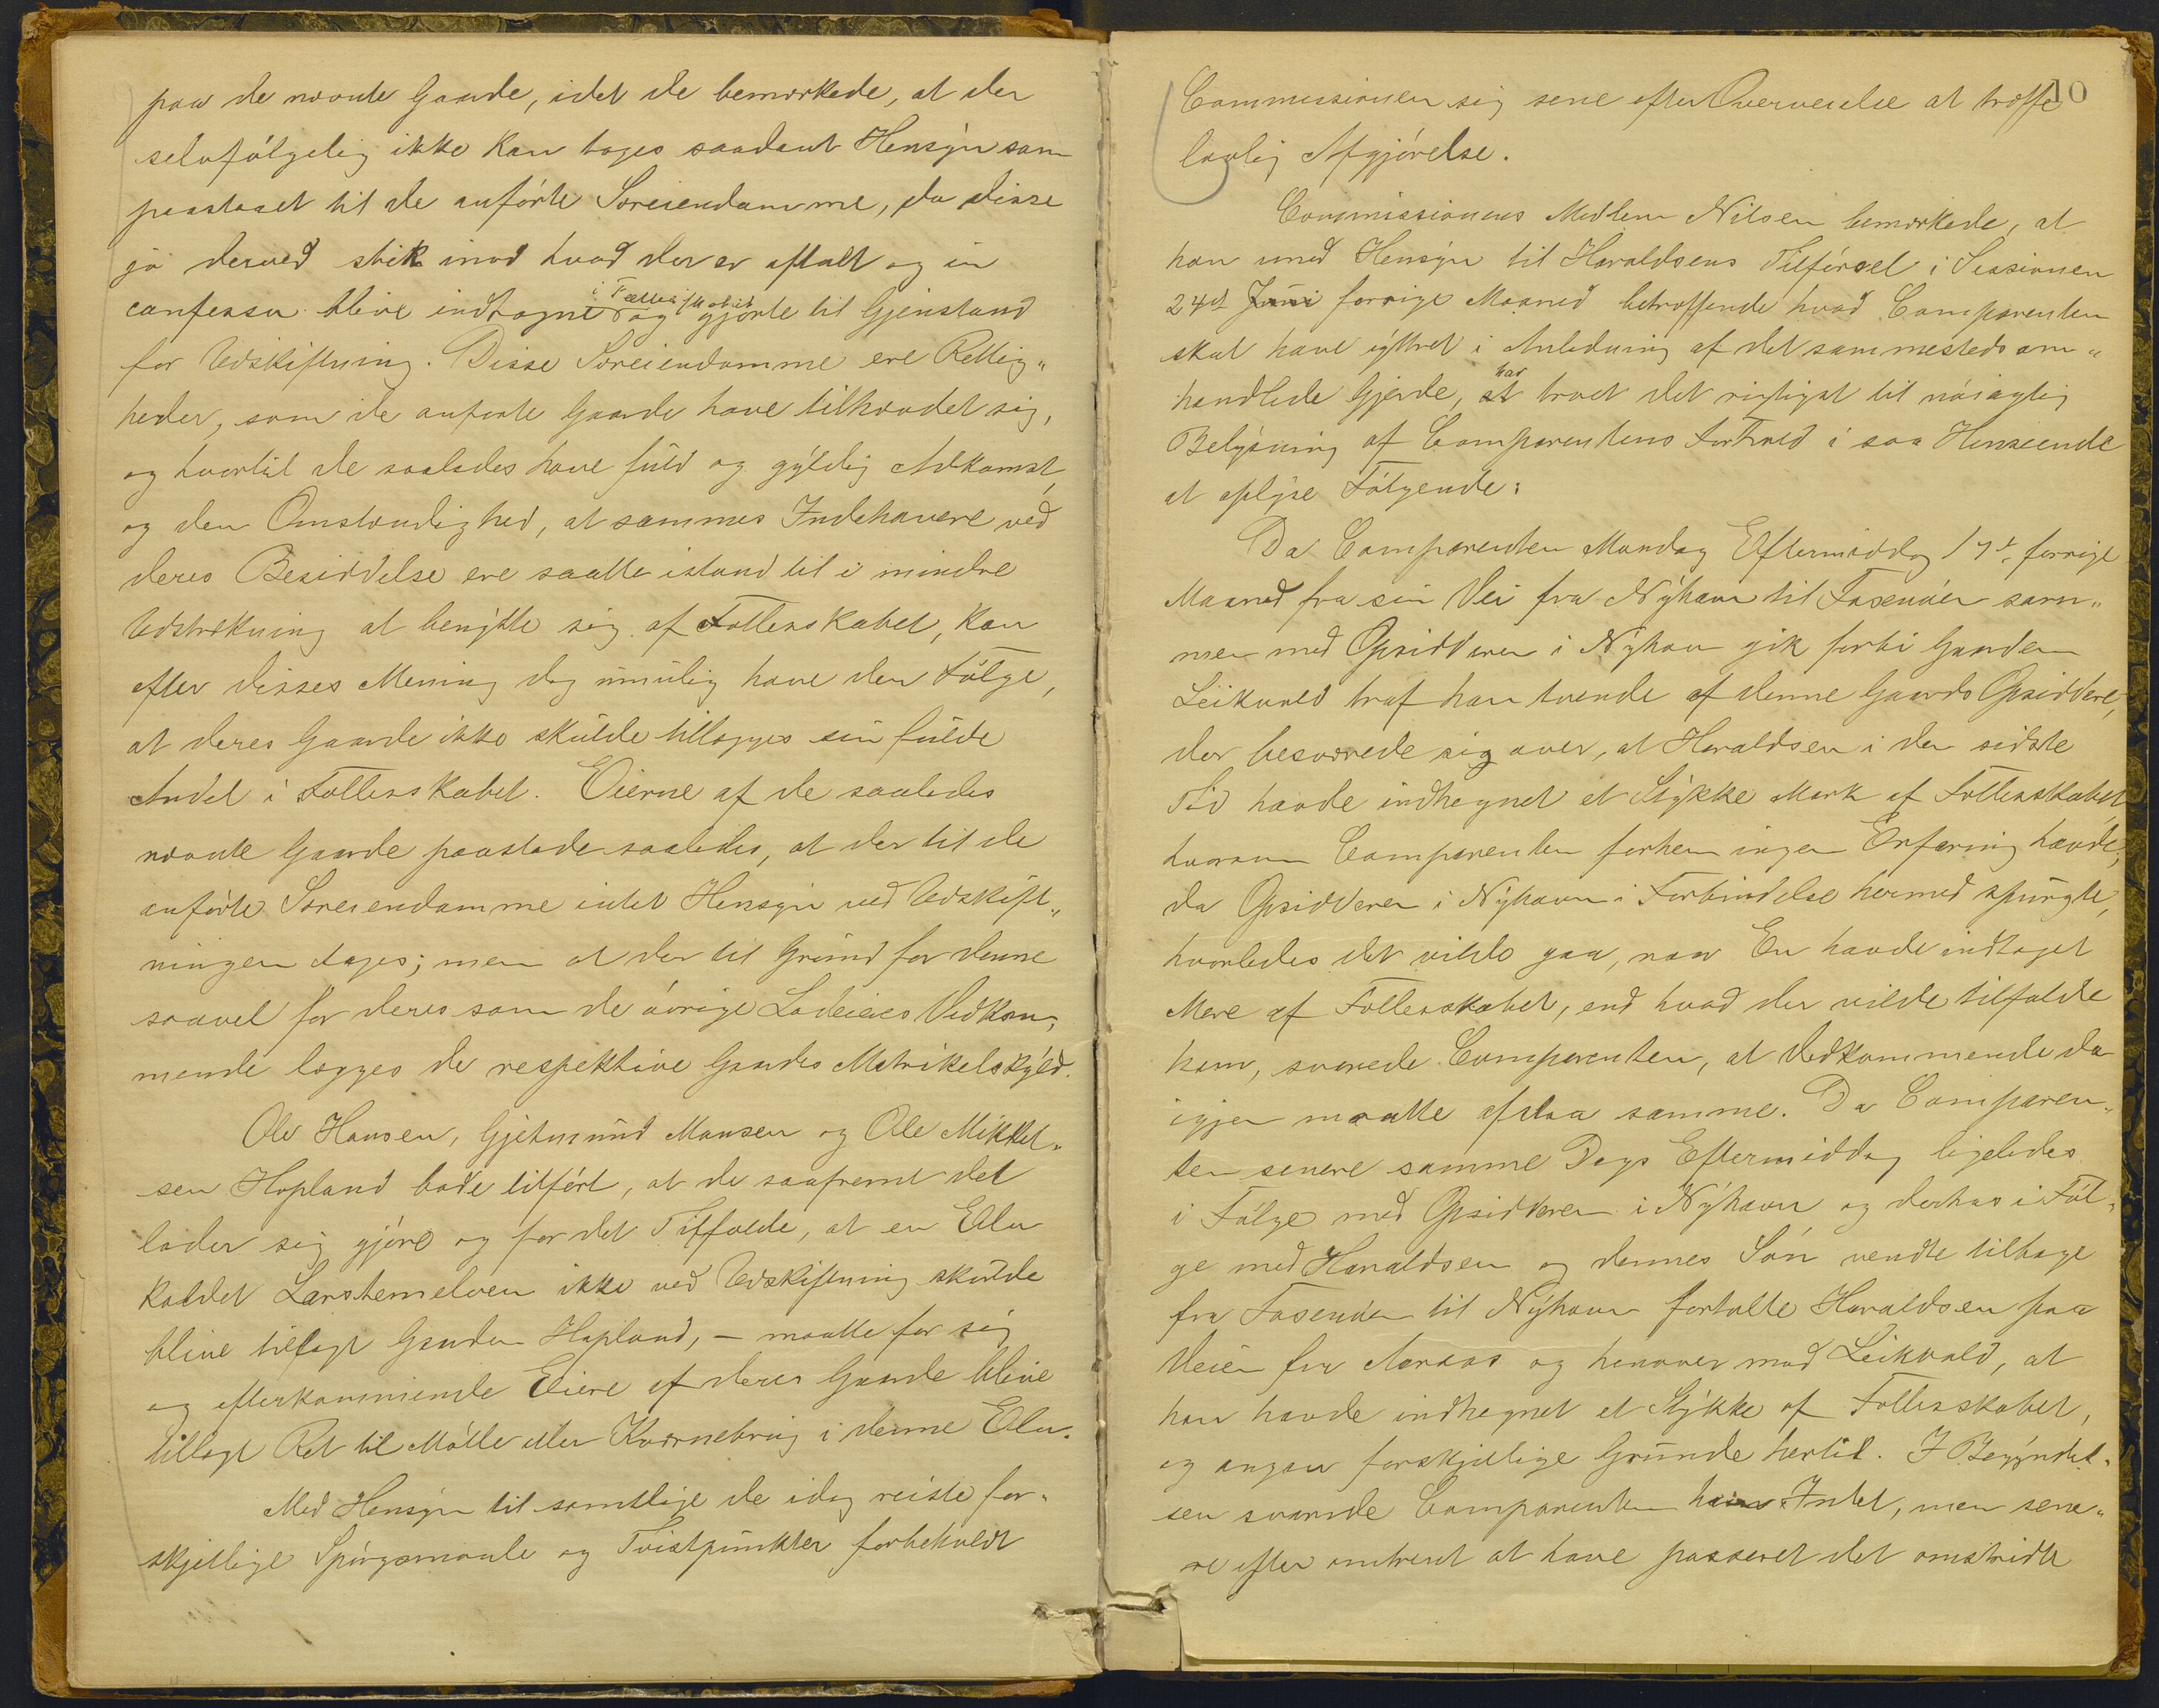 paa de nævnte Gaarde, idet de bemærkede, at der
selvfølgelig ikke kan tages saadant Hensyn som
paastaaet til de anførte Særeiendomme, da disse
jo derved stik imod hvad der er aftalt og in
confesso blive indtagne i Fællesskabet og gjorte til Gjenstand
for Udskiftning. Disse Særeiendomme ere Rettig„
heder, som de anførte Gaarde have tilhævdet sig,
og hvortil de saaledes have fuld og gyldig Adkomst,
og den Omstændighed, at sammes Indehavere ved
deres Besiddelse ere saatte istand til i mindre
Udstrækning at benytte sig af Fællesskabet, kan
efter disses Mening dog umulig have den Følge,
at deres Gaarde ikke skulde tillægges sin fulde
Andel i Fællesskabet. Eierne af de saaledes
nævnte Gaarde paastode saaledes, at der til de
anførte Særeiendomme intet Hensyn ved Udskift„
ningen tages; men at der til Grund for denne
saavel for deres som de øvrige Lodeieres Vedkom„
mende lægges de respektive Gaardes Matrikelskyld.
Ole Hansen, Gjetmund Monsen og Ole Mikkel„
sen Hopland bade tilført, at de saafremt det
lader sig gjøre og for det Tilfælde, at en Elv
kaldet Larstemelven ikke ved Udskiftning skulde
blive tillagt Gaarden Hopland, – maatte for sig
og efterkommende Eiere af deres Gaarde blive
tillagt Ret til Mølle eller Kværnebrug i denne Elv.
Med Hensyn til samtlige de idag reiste for„
skjellige Spørgsmaale og Tvistpunkter forbeholdt
10
Commissionen sig sene efter Overveielse at træffe
lovlig Afgjørelse.
Commissionens Medlem Nilsen bemærkede, at
han med Hensyn til Haraldsens Tilførsel i Sessionen
24de Juni forrige Maaned betræffende hvad Comparenten
skal have yttret i Anledning af det sammesteds om„
handlede Gjerde, har troet det rigtigst til nøiagtig
Belysning af Comparentens Forhold i saa Henseende
at oplyse Følgende:
Da Comparenten Mandag Eftermiddag 17de forrige
Maaned fra sin Vei fra Nyhavn til Fosenøen sam„
men med Opsidderen i Nyhavn gik forbi Gaarden
Leikvold traf han tvende af denne Gaards Opsiddere,
der besværede sig over, at Haraldsen i den sidste
Tid havde indhegnet et Stykke Mark af Fællesskabet,
hvorom Comparenten forhen ingen Erfaring havde;
da Opsidderen i Nyhavn i Forbindelse hermed spurgte,
hvorledes det vilde gaa, naar En havde indtaget
Mere af Fællesskabet, end hvad der vilde tilfalde
ham, svarede Comparenten, at Vedkommende da
igjen maatte afstaa samme. Da Comparen„
ten senere samme Dags Eftermiddag ligeledes
i Følge med Opsidderen i Nyhavn og derhos i Føl„
ge med Haraldsen og dennes Søn vendte tilbage
fra Fosenøen til Nyhavn fortalte Haraldsen paa
Veien fra Aaraas og henover mod Leikvold, at
han havde indhegnet et Stykke af Fællesskabet,
og angav forskjellige Grunde hertil. I Begyndel„
sen svarede Comparenten Intet, men sene„
re efter omtrent at have passeret det omstridte